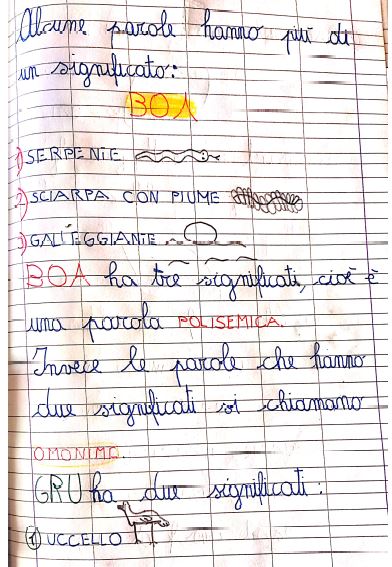 Alcune parole hanno più di
un significato:
BOA
1) SERPENTE
2) SCIARPA CON PIUME
3) GALLEGGIANTE
BOA ha tre significati, cioè è
una parola POLISEMICA.
Invece le parole che hanno
due significati si chiamano
OMONIMO.
GRU ha due significati:
1 UCCELLO